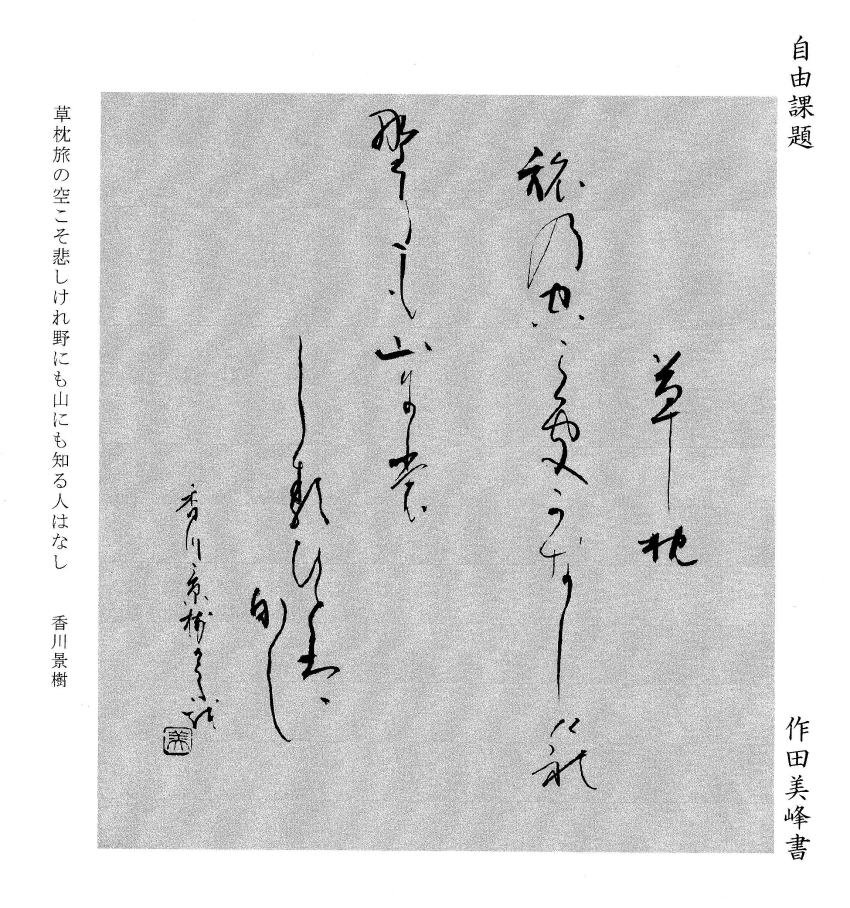 自由課題
作田美峰書
草枕
旅乃空こそかなし介礼
野にも山尓裳
しるひとは
なし
香川景樹
美
草枕旅の空こそ悲しけれ野にも山にも知る人はなし
香川景樹